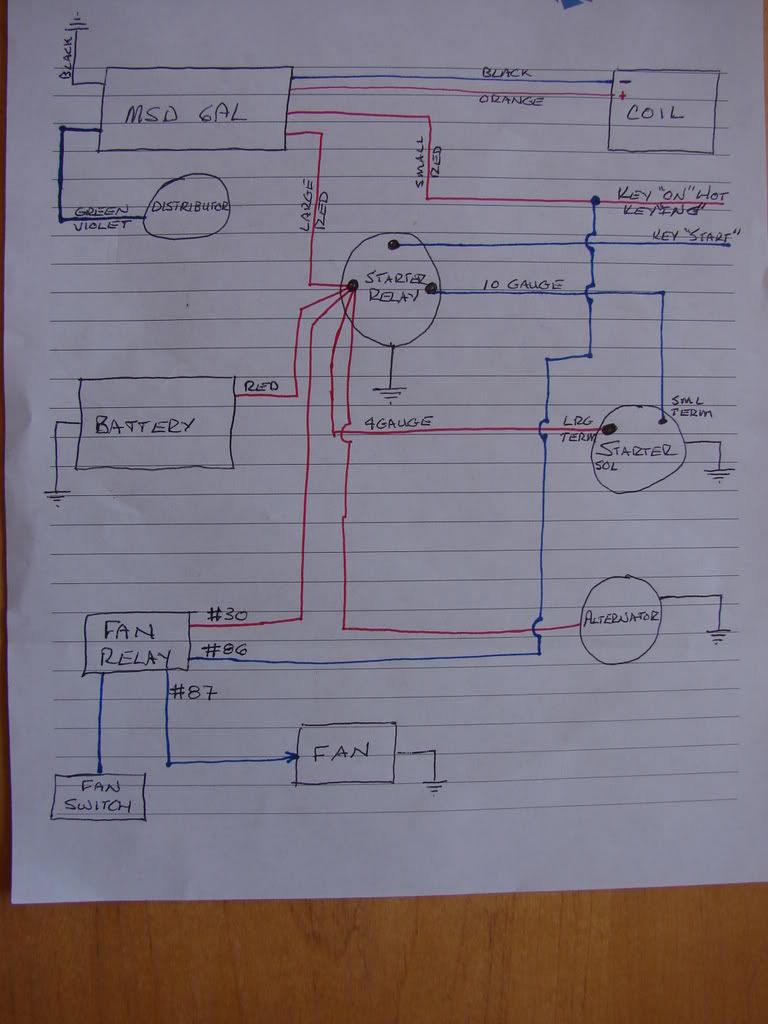 BLACK
MSD 6AL
BLACK
ORANGE
-
+
COIL
SMALL
RED
LARGE
RED
GREEN
VIOLET
DISTRIBUTOR
KEY "ON" HOT
KEY "START"
STARTER
RELAY
10 GAUGE
RED
BATTERY
4 GAUGE
LRG
TERM
SML
TERM
STARTER
SOL
#30
FAN
RELAY
#86
#87
ALTERNATOR
FAN
FAN
SWITCH